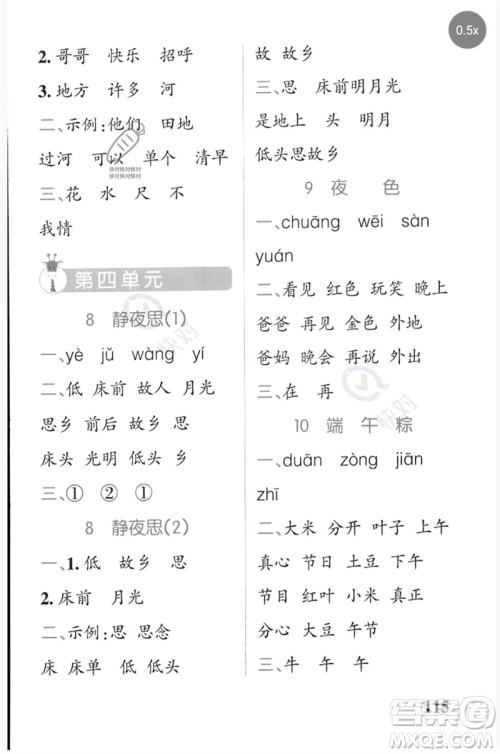 2.哥哥 快乐 招呼
3.地方 许多 河
二、示例:他们 田地
过河 可以 单个 清早
三、花 水 尺 不
我情
第四单元
8 静夜思(1)
一、yè jǔ wàng yí
二、低 床前 故人 月光
思乡 前后 故乡 思考
床头 光明 低头 乡
三、① ② ①
8 静夜思(2)
一、1.低 故乡 思
2.床前 月光
二、示例:思 思念
床 床单 低 低头
故 故乡
三、思 床前明月光
是地上 头 明月
低头思故乡
9 夜色
一、chuāng wēi sàn
yuán
二、看见 红色 玩笑 晚上
爸爸 再见 金色 外地
爸妈 晚会 再说 外出
三、在 再
10 端午粽
一、duān zòng jiān
zhī
二、大米 分开 叶子 上午
真心 节日 土豆 下午
节目 红叶 小米 真正
分心 大豆 午节
三、牛 午 午
115
0.5x
快对快对快对
快对快对快对
快对
快对
答案圈
MXQE.COM